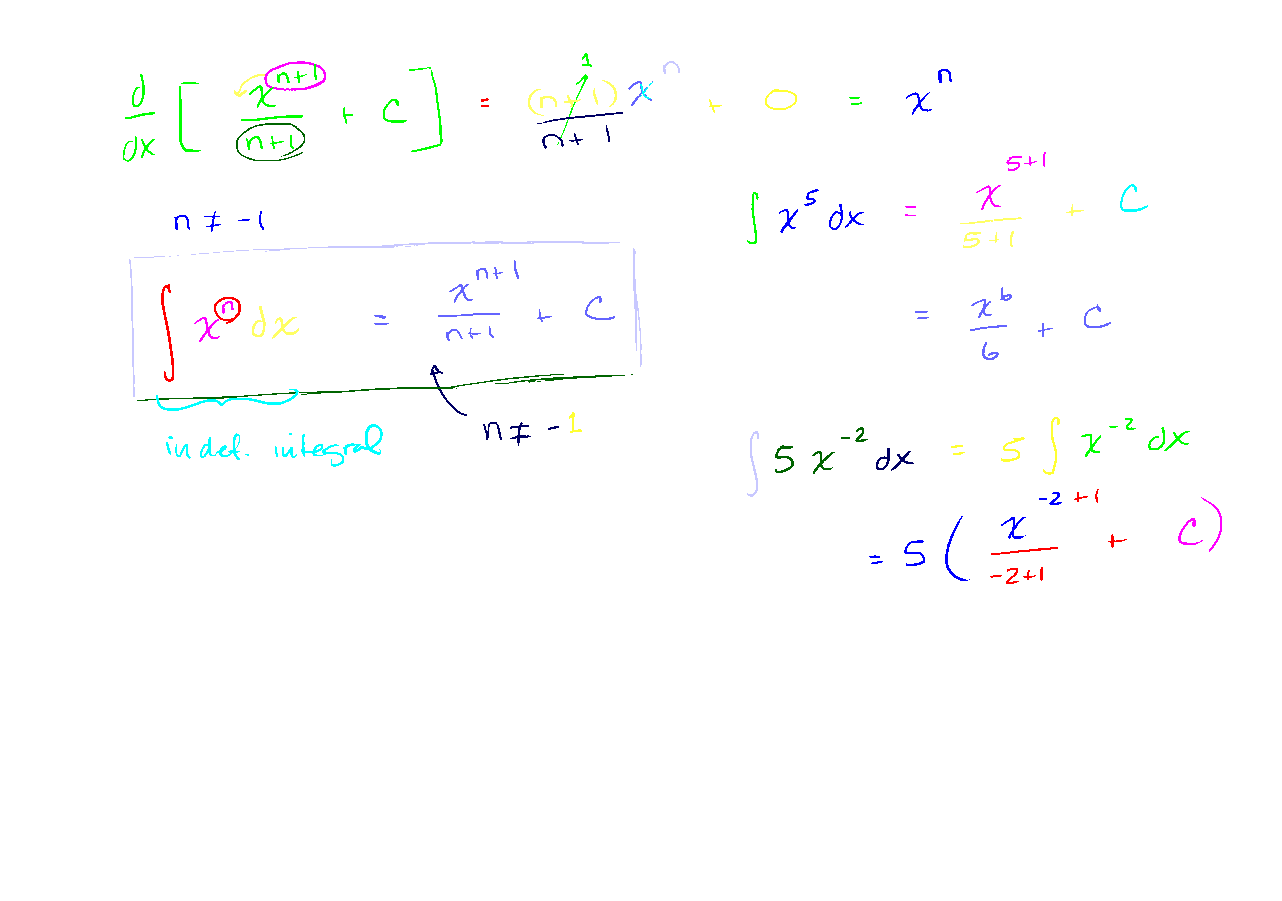 d/dx [ x^(n+1)/(n+1) + C ] = (n+1)x^n/(n+1) + 0 = x^n
1
n ≠ -1
∫ x^n dx = x^(n+1)/(n+1) + C
n ≠ -1
indef. integral
∫ x^5 dx = x^(5+1)/(5+1) + C
= x^6/6 + C
∫ 5 x^-2 dx = 5 ∫ x^-2 dx
= 5 ( x^(-2+1)/(-2+1) + C )